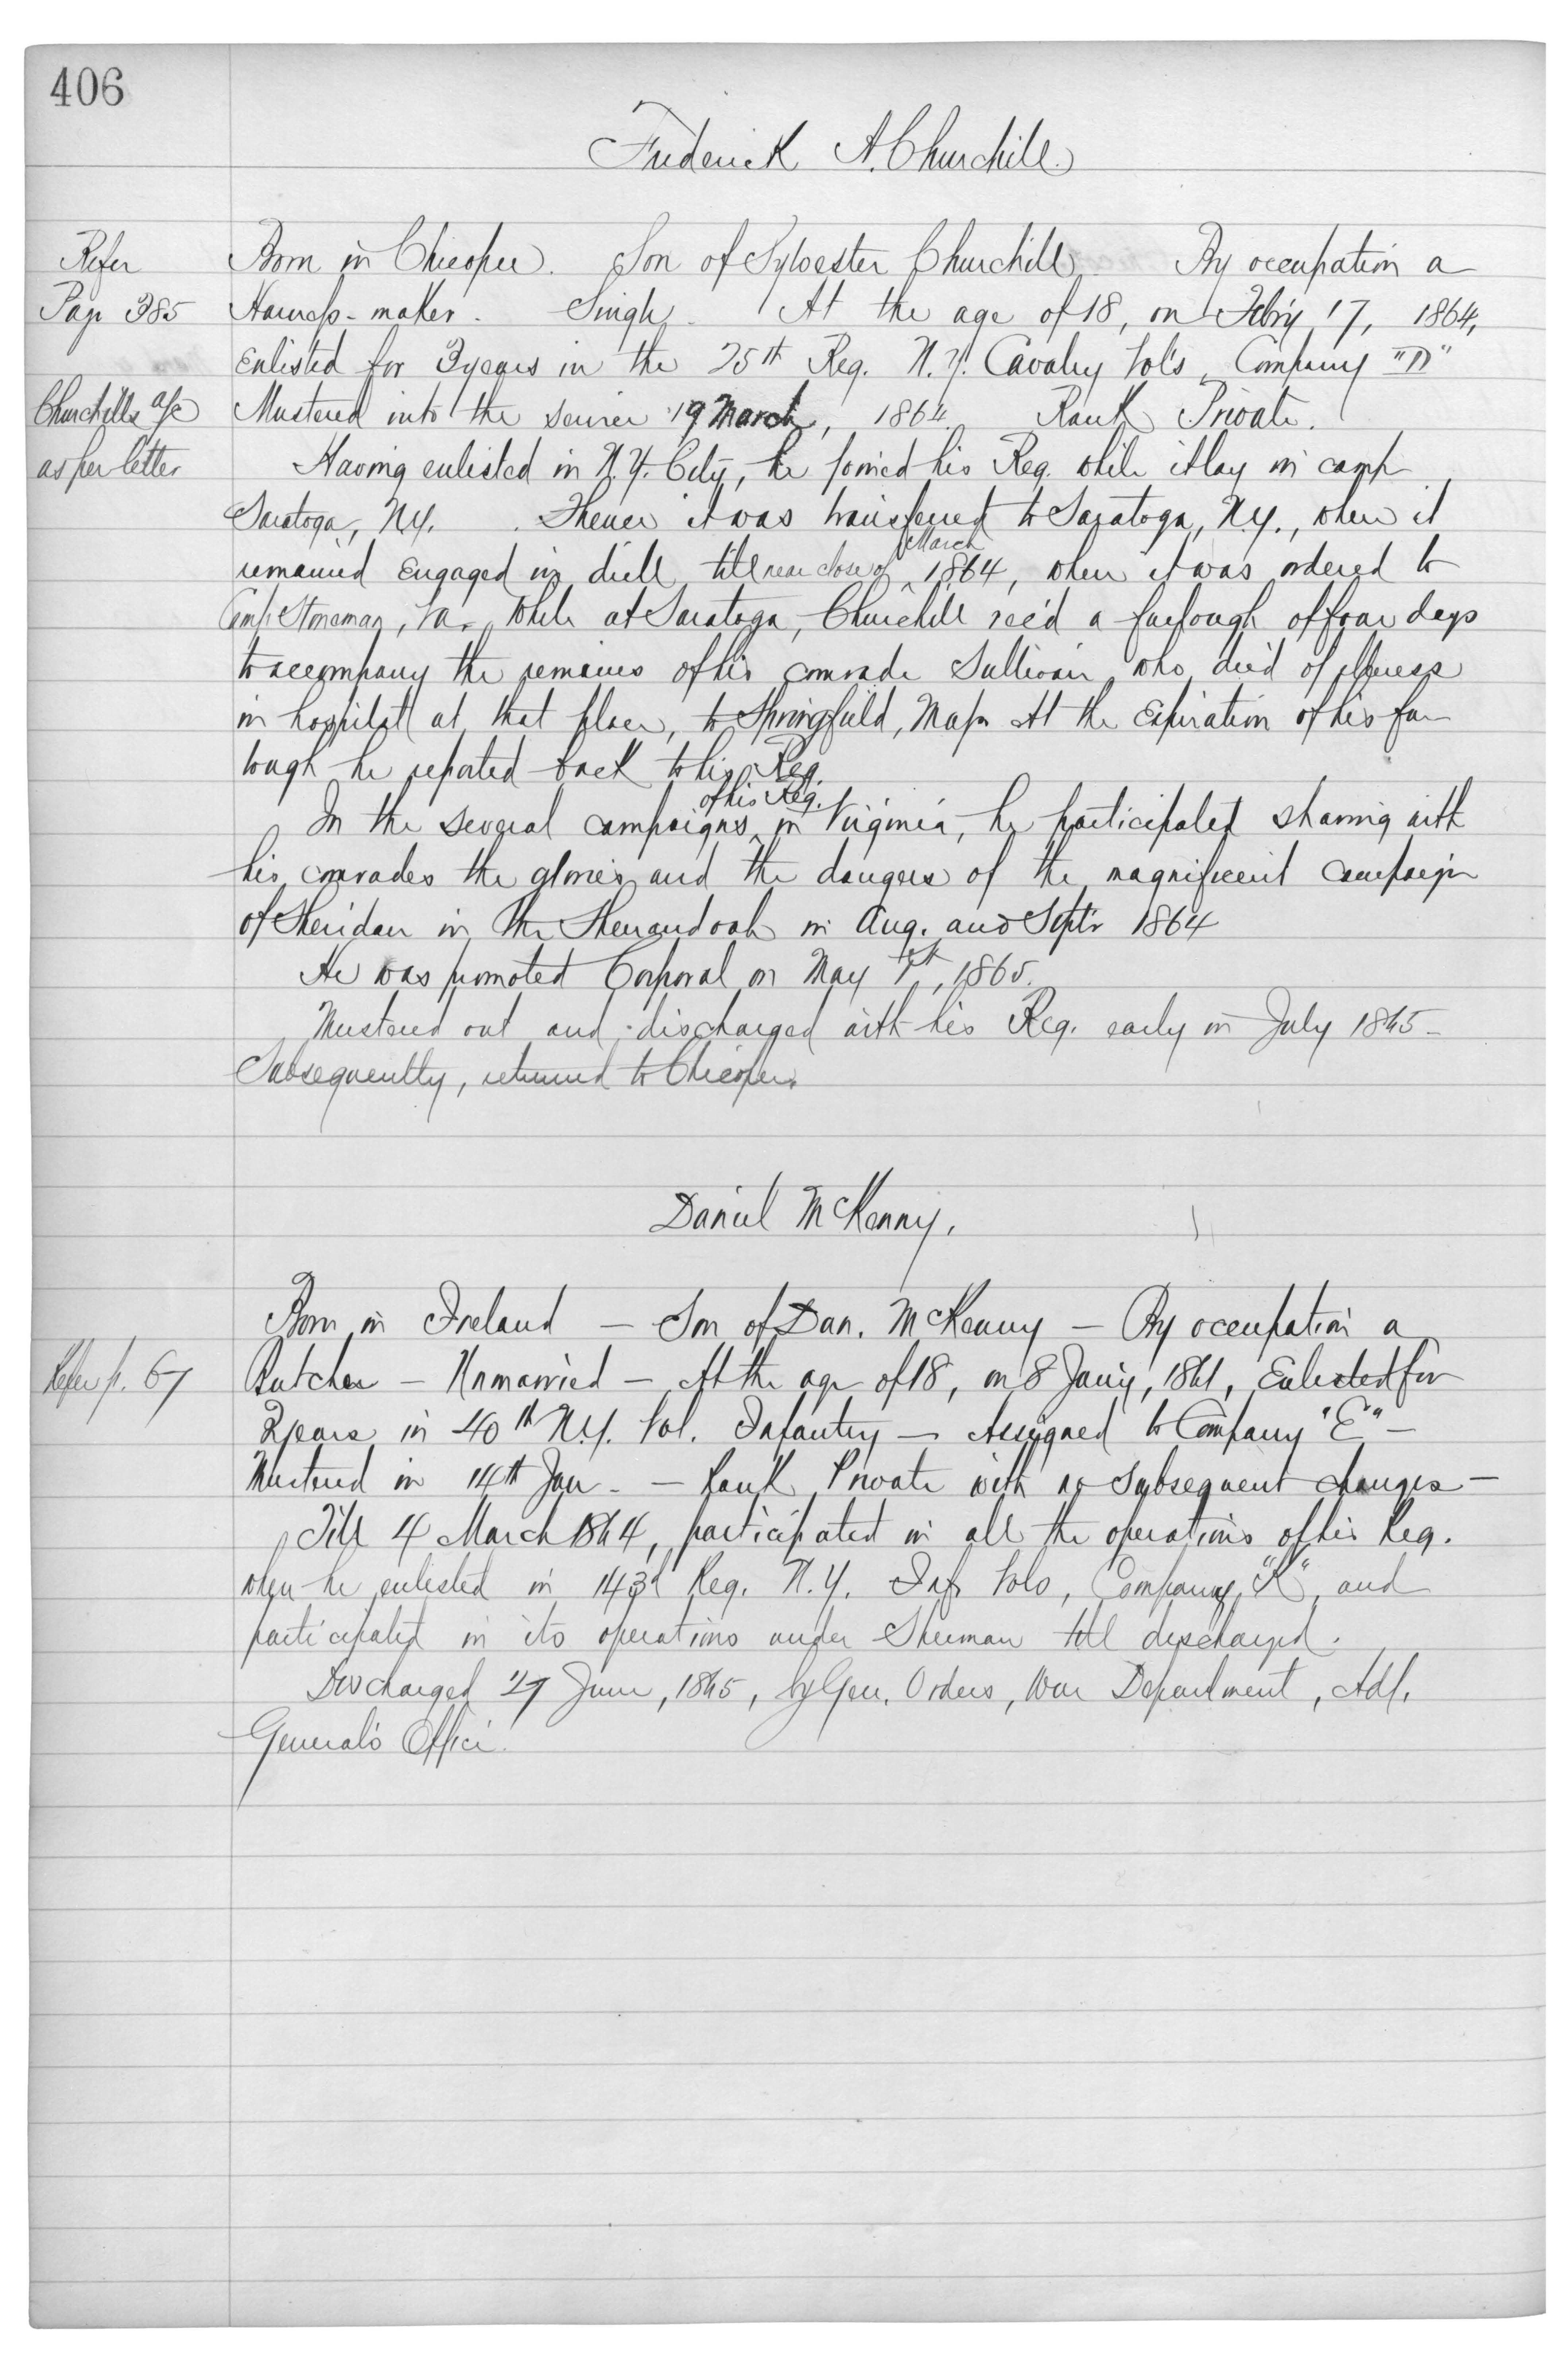 406
Frederick A. Churchill.
Refer
Page 385
Churchills a/c
as per letter
Born in Chicopee. Son of Sylvester Churchill. By occupation a
Harness-maker. Single. At the age of 18, on Feb'y 17, 1864,
Enlisted for 3 years in the 25th Reg. N.Y. Cavalry Vol's, Company "D"
Mustered into the service 19 March, 1864. Rank Private.
Having enlisted in N.Y. City, he joined his Reg. while it lay in camp
Saratoga, N.Y. Thence it was transferred to Saratoga, N.Y., where it
remained Engaged in drill till near close of March 1864, when it was ordered to
Camp Stoneman, Va. While at Saratoga, Churchill rec'd a furlough of four days
to accompany the remains of his comrade Sullivan who died of illness
in hospital at that place, to Springfield, Mass. At the Expiration of his fur-
lough he reported back to his Reg.
In the several campaigns of his Reg. in Virginia, he participated sharing with
his comrades the glories and the dangers of the magnificent campaign
of Sheridan in the Shenandoah in Aug. and Sept'r 1864
He was promoted Corporal on May 1st, 1865.
Mustered out and discharged with his Reg. early in July 1865-
Subsequently, returned to Chicopee.
Daniel McKenny.
Refer p. 67
Born in Ireland - Son of Dan. McKenny - By occupation a
Butcher - Unmarried - At the age of 18, on 8 Jan'y, 1861, Enlisted for
3 years in 40th N.Y. Vol. Infantry - Assigned to Company "E" -
Mustered in 14th Jan. - Rank Private with no subsequent changes -
Till 4 March 1864, participated in all the operations of his Reg.
when he enlisted in 143d Reg. N.Y. Inf. Vols, Company "K", and
participated in its operations under Sherman till discharged.
Discharged 27 June, 1865, by Gen. Orders, War Department, Adj.
General's Office.